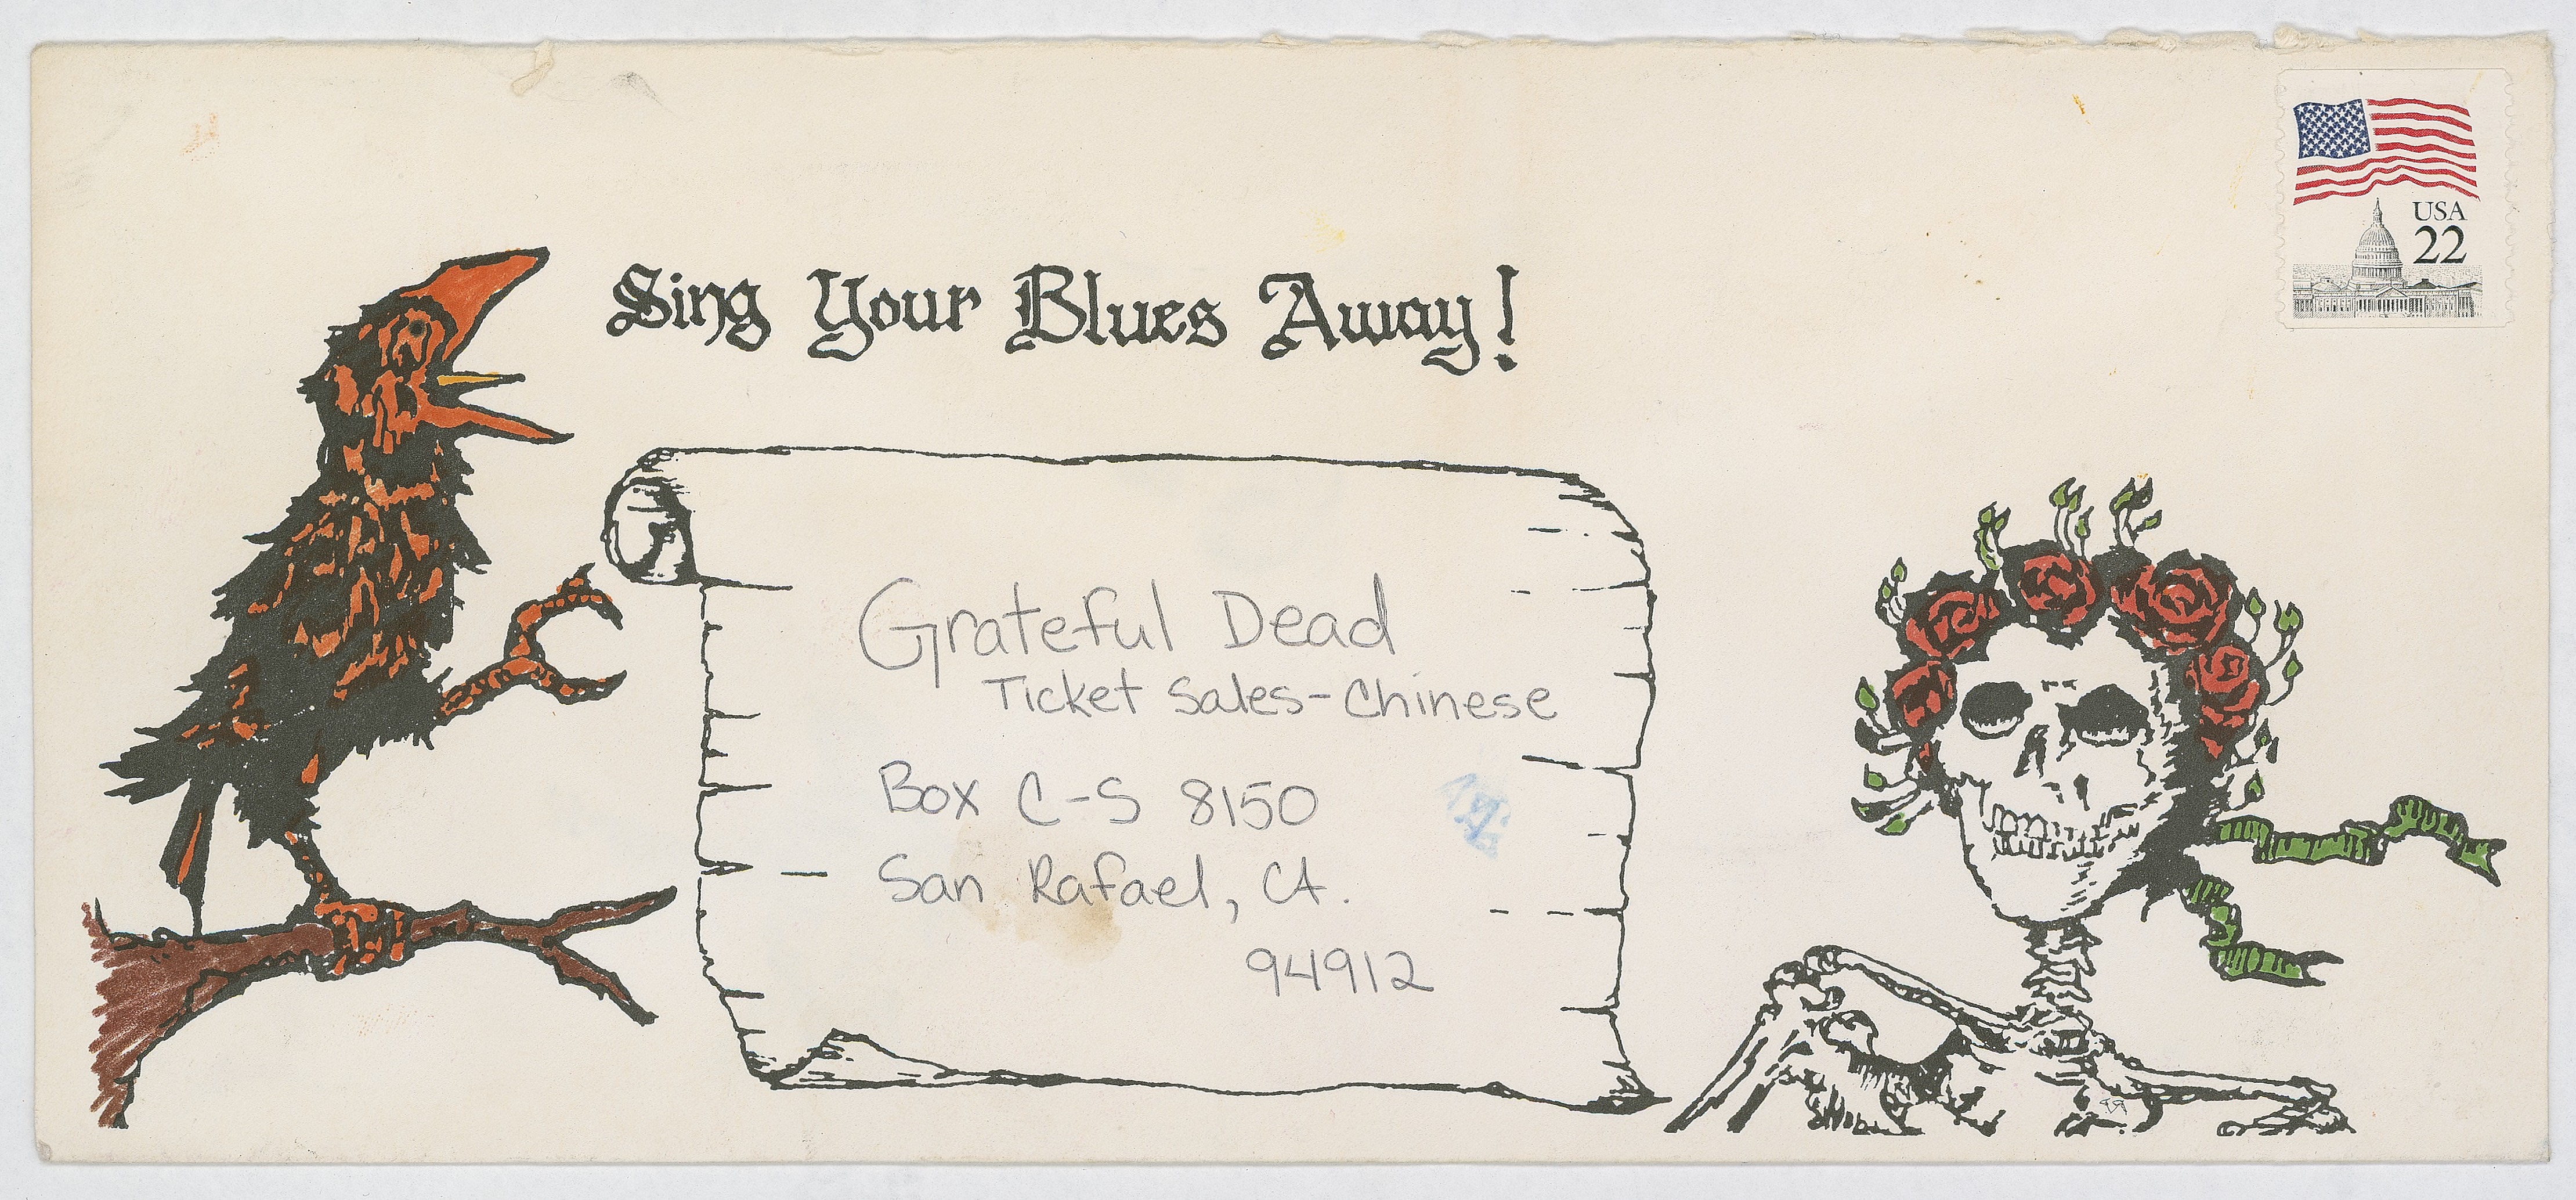 USA
22
Sing Your Blues Away!
Grateful Dead
Ticket Sales-Chinese
Box C-S 8150
San Rafael, CA.
94912